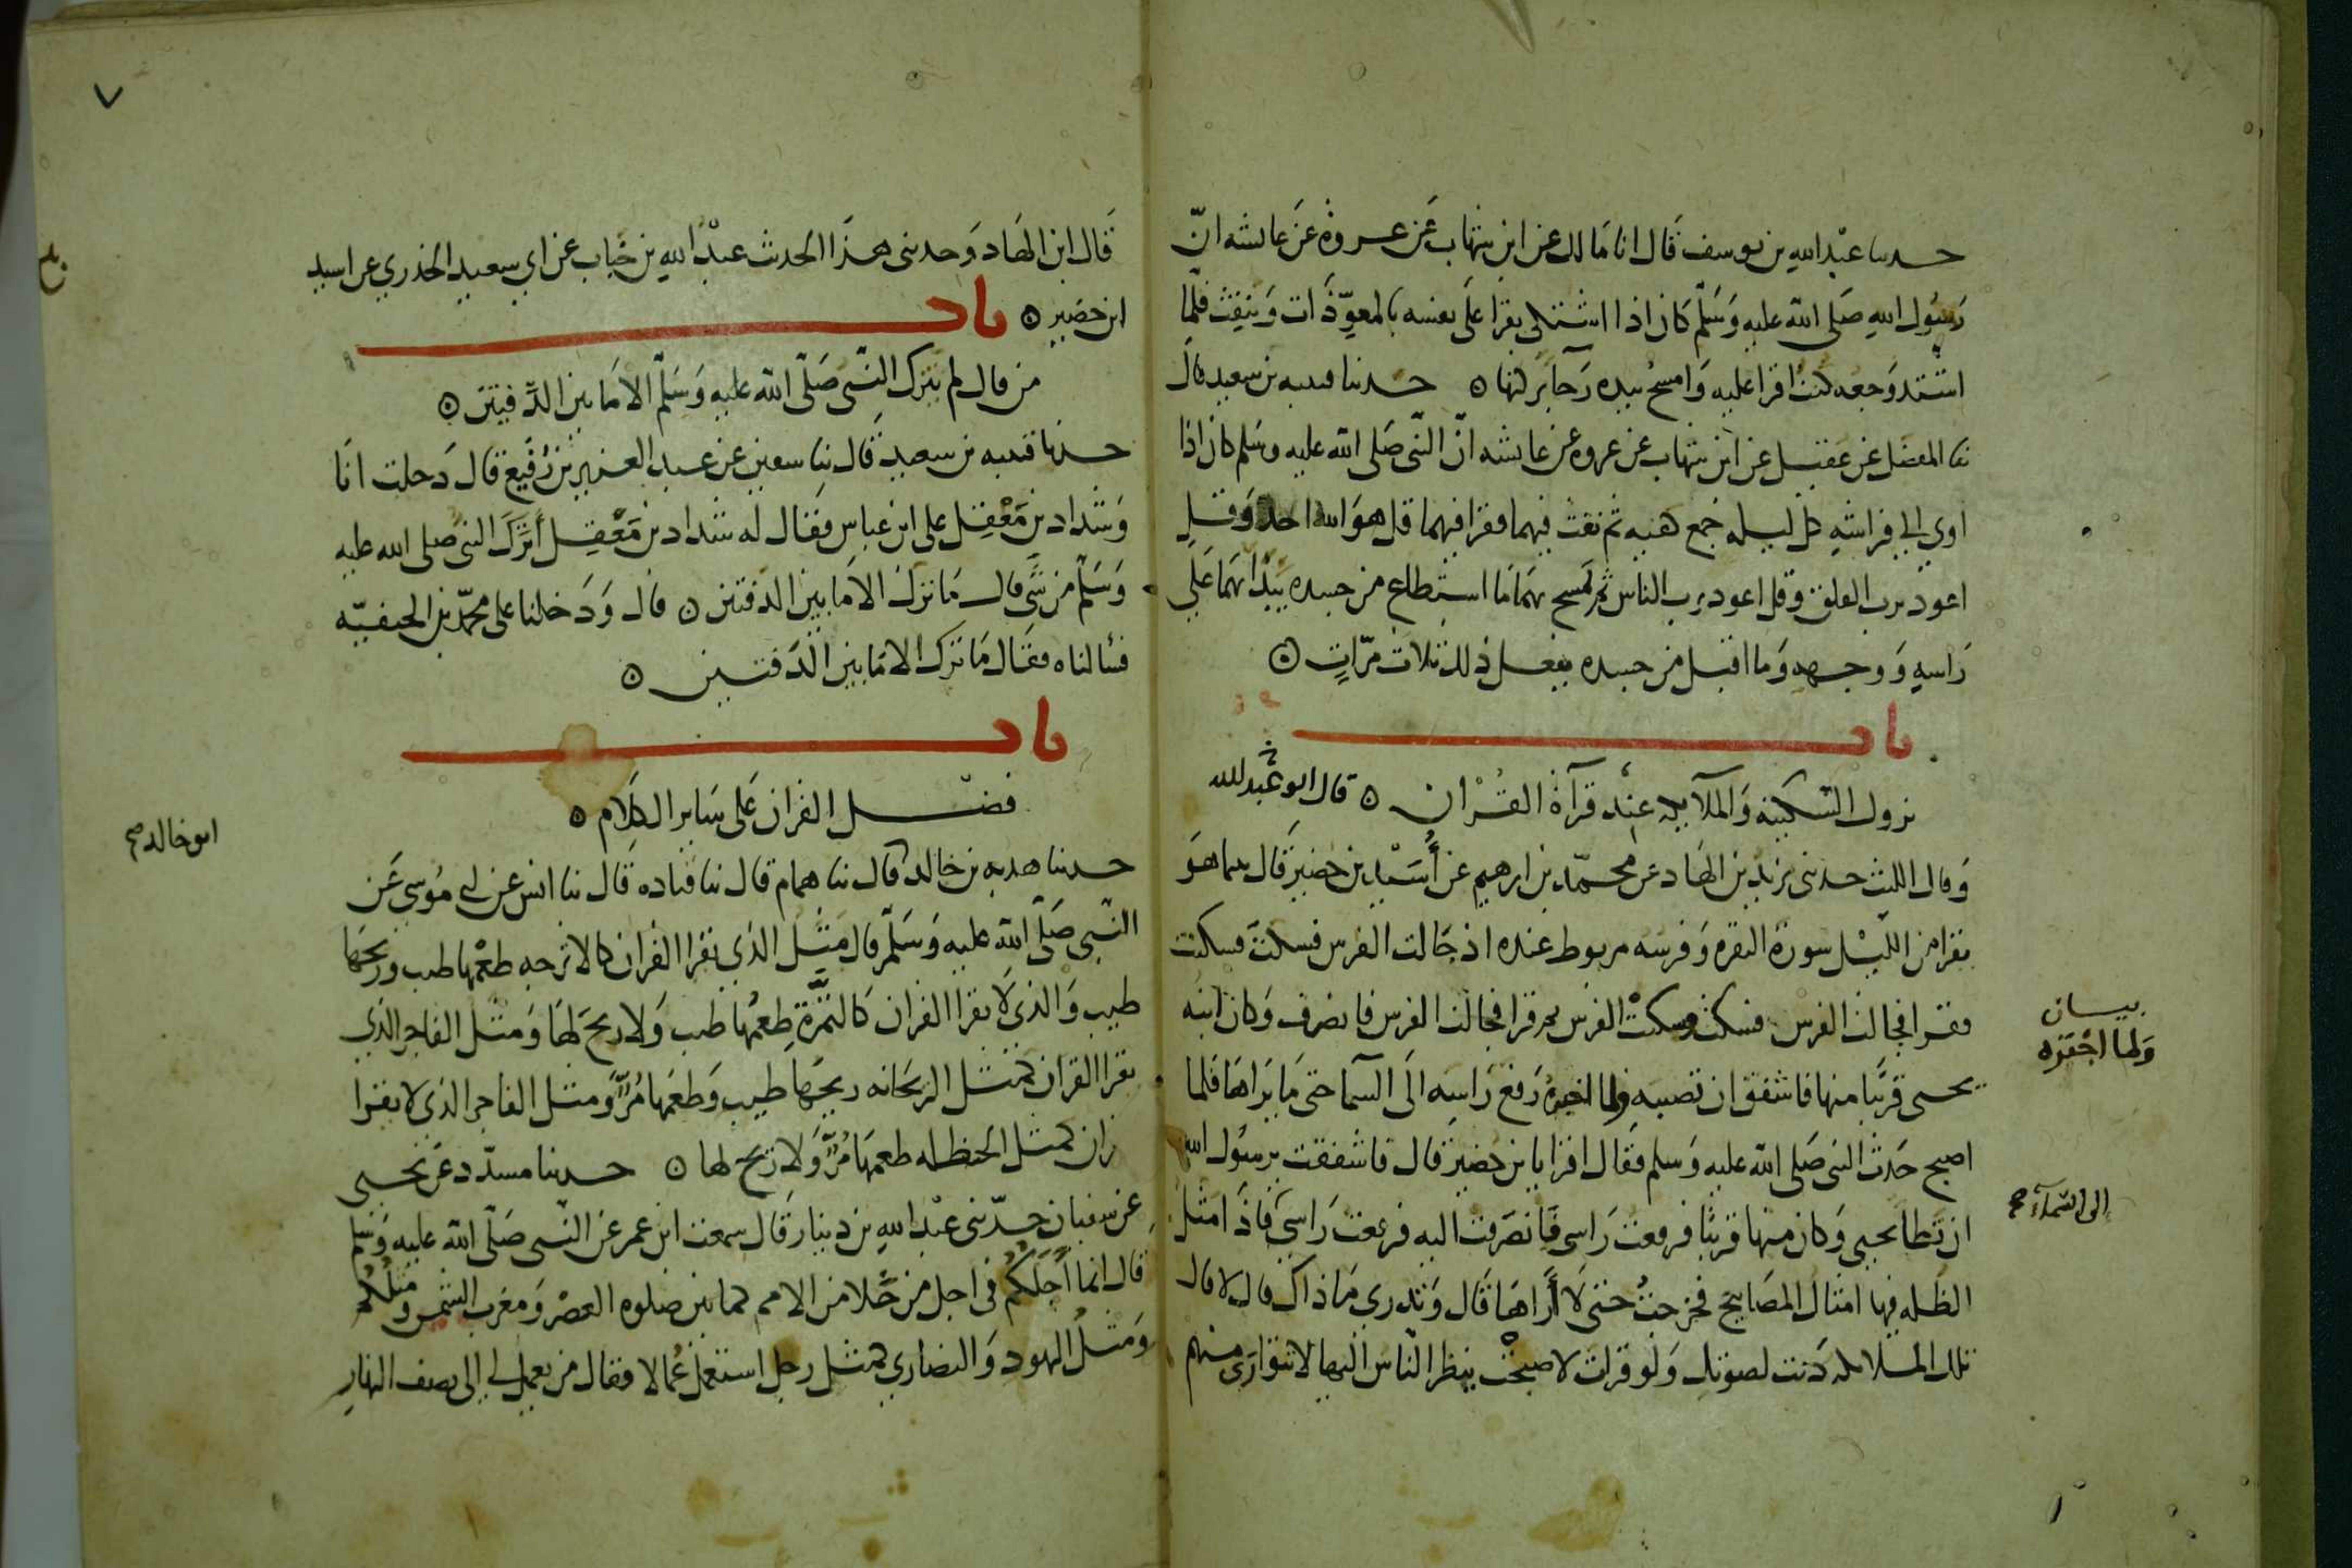 حدثنا عبد الله بن يوسف قال انا مالك عن ابن شهاب عن عروة عن عايشه انّ
رسول الله صلى الله عليه وسلم كان اذا اشتكى يقرا على نفسه بالمعوّذات وينفث فلما
اشتد وجعه كنت اقرا عليه وامسح بيده رجآ بركتها ۞ حدثنا قتيبه بن سعيد قال
ثنا المفضل عن عقيل عن ابن شهاب عن عروه عن عايشه انّ النبى صلى الله عليه وسلم كان اذا
اوى الى فراشه كل ليله جمع كفيه ثم نفث فيهما فقرا فيهما قل هو الله احد وقل
اعوذ برب الفلق وقل اعوذ برب الناس ثم يمسح بهما ما استطاع من جسده يبدا بهما على
راسه ووجهه وما اقبل من جسده يفعل ذلك ثلاث مرّات ۞
باب
نزول السكينه والملآيكه عند قرآة القرْان ۞ قال ابو عبد الله
وقال الليث حدثنى يزيد بن الهاد عن محمّد بن ابرهيم عن أُسَيْد بن حضير قال بينما هو
يقرا من الليل سورة البقره وفرسه مربوط عنده اذ جالت الفرس فسكت فسكنت
فقرا فجالت الفرس فسكت وسكنت الفرس ثم قرا فجالت الفرس فانصرف وكان ابنه
يحيى قريبا منها فاشفق ان تصيبه ولما اخبره رفع راسه الى السمآ حتى ما يراها فلما
اصبح حدث النبى صلى الله عليه وسلم فقال اقرا يا بن حضير قال فاشفقت يرسول الله
ان تطا يحيى وكان منها قريبا فرفعت راسى فانصرفت اليه فرفعت راسى فاذا مثل
الظله فيها امثال المصابيح فخرجت حتى لا أراها قال وتدرى ما ذاك قال لا قال
تلك الملايكه دنت لصوتك ولو قرات لاصبحت ينظر الناس اليها لا تتوارى منهم
بيان
ولما اجْتَرّه
الى السمآء صح
٧
قال ابن الهاد وحدثنى هذا الحديث عبد الله بن خباب عن ابى سعيد الخدرى عن اسيد
ابن حضير ۞ باب
من قال لم يترك النّبى صلّى الله عليه وسلّم الا ما بين الدّفتين ۞
حدثنا قتيبه بن سعيد قال ثنا سفين عن عبد العزيز بن رفيع قال دخلت انا
وشداد بن معقل على ابن عباس فقال له شداد بن معقل أترك النبى صلى الله عليه
وسلم من شى قال ما ترك الا ما بين الدفتين ۞ قال ودخلنا على محمّد بن الحنفيّه
فسالناه فقال ما ترك الا ما بين الدّفتين ۞
باب
فضل القران على ساير الكلام ۞
حدثنا هدبه بن خالد قال ثنا همام قال ثنا قتاده قال ثنا انس عن ابى موسى عن
النّبى صلّى الله عليه وسلّم قال مثل الذى يقرا القران كالاترجه طعمها طيب وريحها
طيب والذى لا يقرا القران كالتمرة طعمها طيب ولا ريح لها ومثل الفاجر الذى
يقرا القران كمثل الريحانه ريحها طيب وطعمها مُرّ ومثل الفاجر الذى لا يقرا
القران كمثل الحنظله طعمها مرّ ولا ريح لها ۞ حدثنا مسدّد عن يحيى
عن سفيان حدّثنى عبد الله بن دينار قال سمعت ابن عمر عن النّبى صلّى الله عليه وسلم
قال انما أجلكم فى اجل من خلا من الامم كما بين صلوه العصر ومغرب الشمس ومثلكم
ومثل اليهود والنصارى كمثل رجل استعمل عمّالا فقال من يعمل لى الى نصف النهار
ابو خالد صح